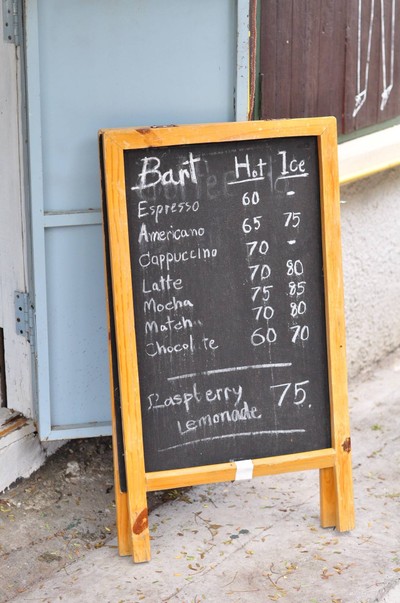 Bart Hot Ice
Espresso 60 -
Americano 65 75
Cappuccino 70 -
Latte 70 80
Mocha 75 85
Matcha 70 80
Chocolate 60 70
Raspberry 75.
Lemonade